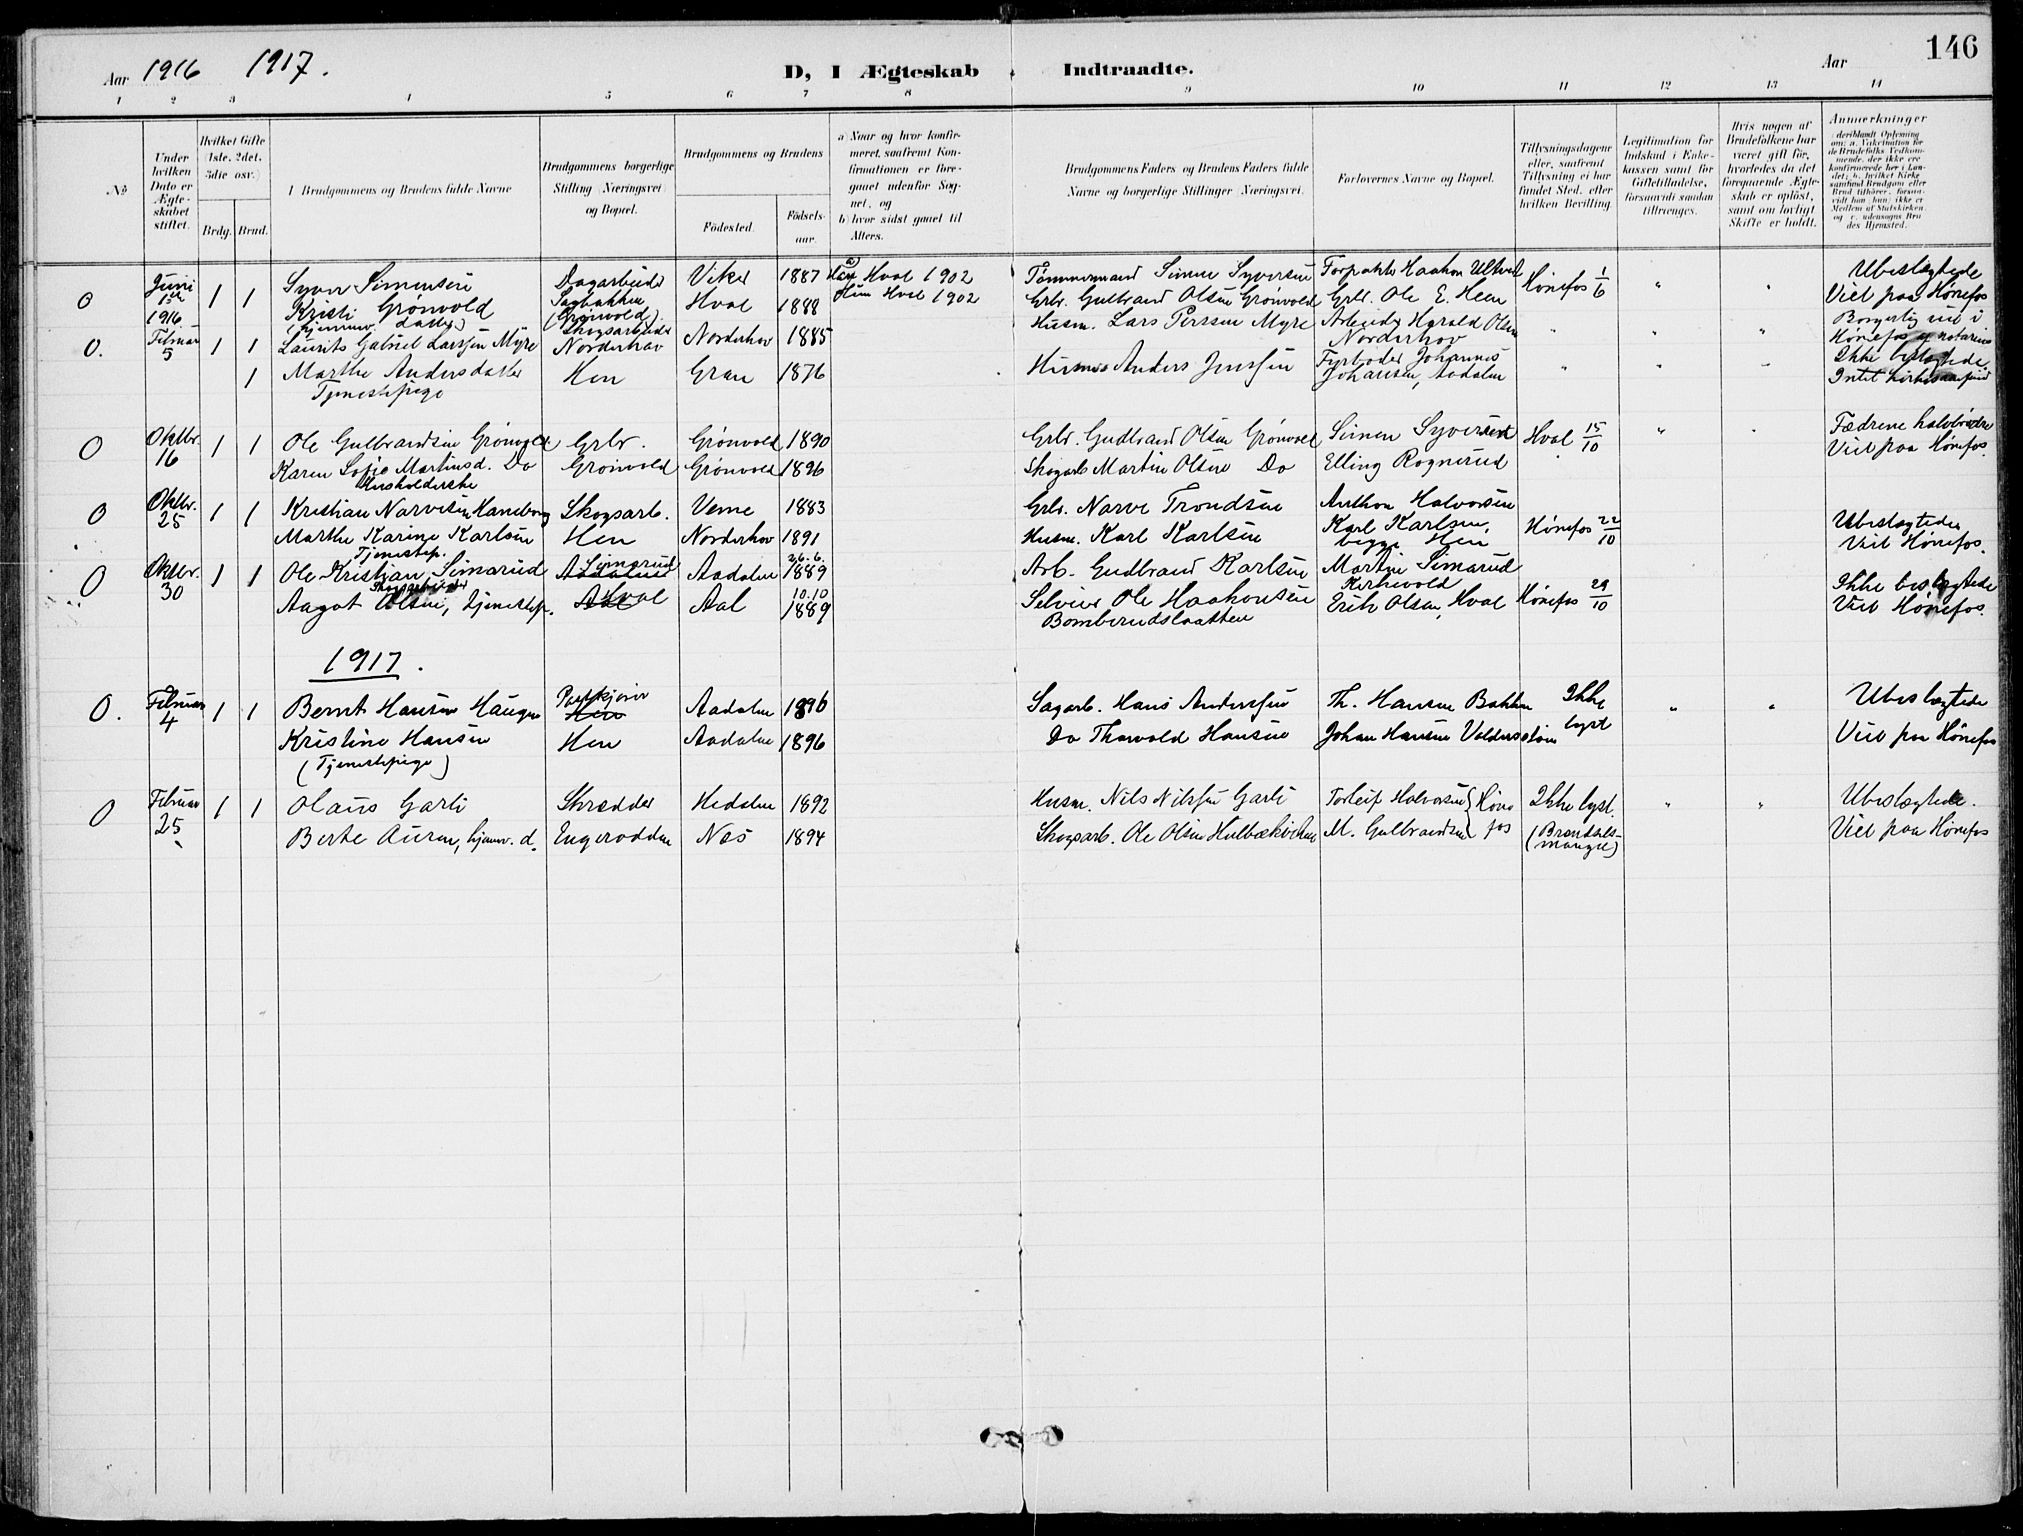 Aar 1916 1917.
D, I Ægteskab Indtraadte.
Aar
146
1 2 3 4 5 6 7 8 9 10 11 12 13 14
No
Under hvilken Dato er Ægteskabet stiftet.
Hvilket Gifte (1ste, 2det, 3die osv.)
Brdg. Brud.
Brudgommens og Brudens fulde Navne
Brudgommens borgerlige Stilling (Næringsvei) og Bopæl.
Brudgommens og Brudens
Födested.
Födselsaar.
a) Naar og hvor konfirmeret, saafremt Konfirmationen er foregaaet udenfor Sognet, og
b) hvor sidst gaaet til Alters.
Brudgommens Faders og Brudens Faders fulde Navne og borgerlige Stilling (Næringsvei).
Forlovernes Navne og Bopæl.
Tillysningsdagene eller, saafremt Tillysning ei har fundet Sted, efter hvilken Bevilling.
Legitimation for Indskud i Enkekassen samt for Giftetilladelse, forsaavidt saadan tiltrænges.
Hvis nogen af Brudefolkene har været gift før, hvorledes da det foregaaende Ægteskab er opløst, samt om lovligt Skifte er holdt.
Anmærkninger
0 Juni 1ste 1916 1 1 Syver Simensen Dagarbeider Viker 1887 Hval 1902 Tömmermand Simen Syversen Forpakter Haakon Ultvedt Hönefos 1/6 " " Ubeslægtede
Kristi Grönvold Sagbakken Hval 1888 Hval 1902 Grbr. Gulbrand Olsen Grönvold Grbr. Ole E. Heen Viet paa Hönefos
(hjemmev. datter) (Grönvold).
0. Februar 5 1 1 Laurits Gabriel Larssen Myre Skogsarbeider Norderhov Norderhov 1885 Husm. Lars Perssen Myre Arbeider Harald Olsen Norderhov " " " Borgerlig viet i Hönefos
1 Marthe Andersdatter Hen Gran 1876 Husm. Anders Jenssen Fyrböder Johannes Johansen, Aadalen " " " Ikke beslægtede.
Tjenestepige Intet
0 Oktbr. 16 1 1 Ole Gulbrandsen Grönvold Grbr. Grönvold 1890 Grbr. Gudbrand Olsen Grönvold Simen Syversen Hval 15/10 " " Fædrene halvbrödre
Karen Sofje Martinsd. Do Grönvold Grönvold 1896 Skogarb. Martin Olsen Do Elling Rognerud Viet paa Hönefos.
Husholderske
0 Oktbr. 25 1 1 Kristian Narvesen Haneborg Skogsarb. Veme 1883 Grbr. Narve Trondsen Anthon Halvorsen
Marthe Karine Karlsen Hen Norderhov 1891 Husm. Karl Karlsen Karl Karlsen, begge Hen Hönefos 22/10 Ubeslægtede
Tjenestep. Viet Hönefos.
0 Oktbr. 30 1 1 Ole Kristian Simarud Simarud Aadalen Aadalen 26.6. 1889 Arb. Gudbrand Karlsen Martin Simarud
Skogsarbeider Kirkevold Ikke beslægtede
Aagot Olsen, tjenestep. Aal Hval Aal 10.10 1889 Selveier Ole Haakonsen Erik Olsen, Hval Hönefos 29/10 Viet Hönefos.
Bomberudslaatten
1917.
0. Februar 4 1 1 Bernt Hansen Haugen Hen Aadalen 1896 Sagarb. Hans Anderssen Th. Hansen Bakken Ikke " " Ubeslægtede
Kristine Hansen Hen Aadalen 1896 Do Thorvald Hansen Johan Hansen lyst Viet paa Hönefos
(Tjenestepige)
0 Februar 25 1 1 Olaus Garli Skrædder Hedalen 1892 Husm. Nils Nilssen Garli Torleif Halvorsen Höne Ikke lyst. " " Ubeslægtede.
Berte Auren, hjemv. d. Engerodden Nes 1894 Skogsarb. Ole Olsen M. Gulbrandsen fos (Brændselsmangel) Viet paa Hönefos